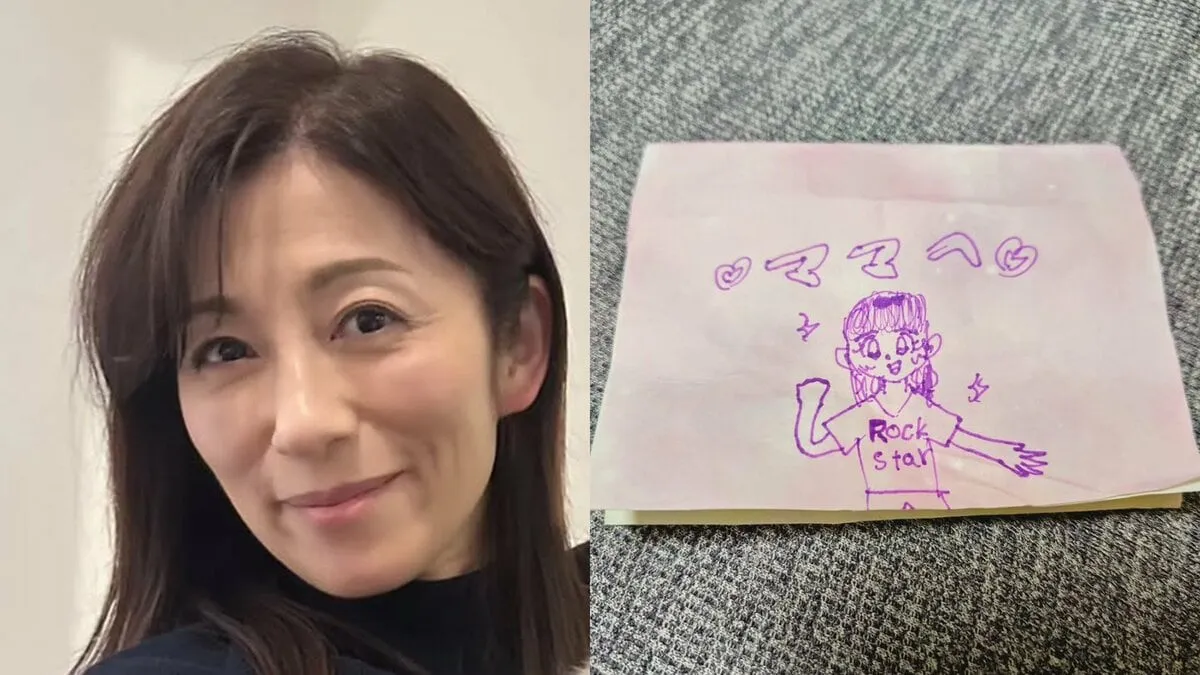 ママへ
Rock
Star